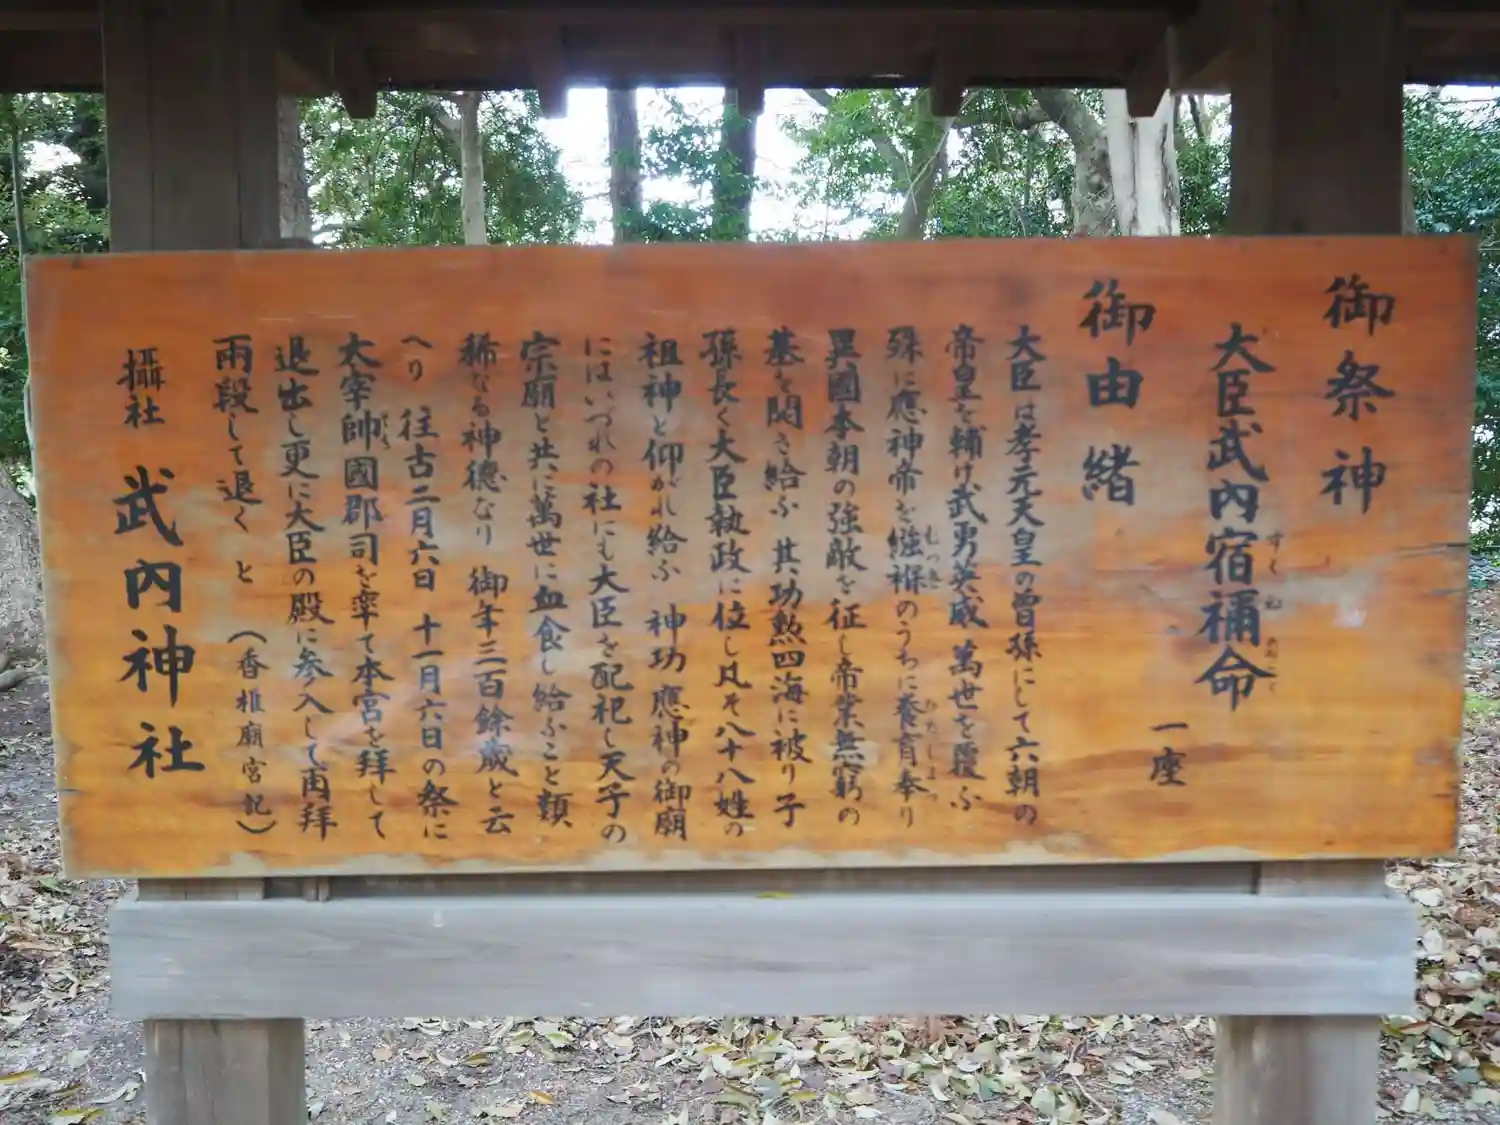 御祭神
大臣武内宿禰命 一座
すく ね のみこと
御由緒
大臣は孝元天皇の曽孫にして六朝の
帝皇を輔け武勇英威 萬世を覆ふ
殊に應神帝を繦褓のうちに養育奉り
むつき ひたしまつ
異國本朝の強敵を征し帝業無窮の
基を開き給ふ 其功勲四海に被り子
孫長く大臣執政に位し凡そ八十八姓の
祖神と仰がれ給ふ 神功 應神の御廟
にはいづれの社にも大臣を配祀し天子の
宗廟と共に萬世に血食し給ふこと類
稀なる神德なり 御年三百餘歳と云
へり 往古二月六日 十一月六日の祭に
太宰帥國郡司を率て本宮を拜して
退出し更に大臣の殿に参入して再拜
兩段して退く と (香椎廟宮記)
攝社 武内神社